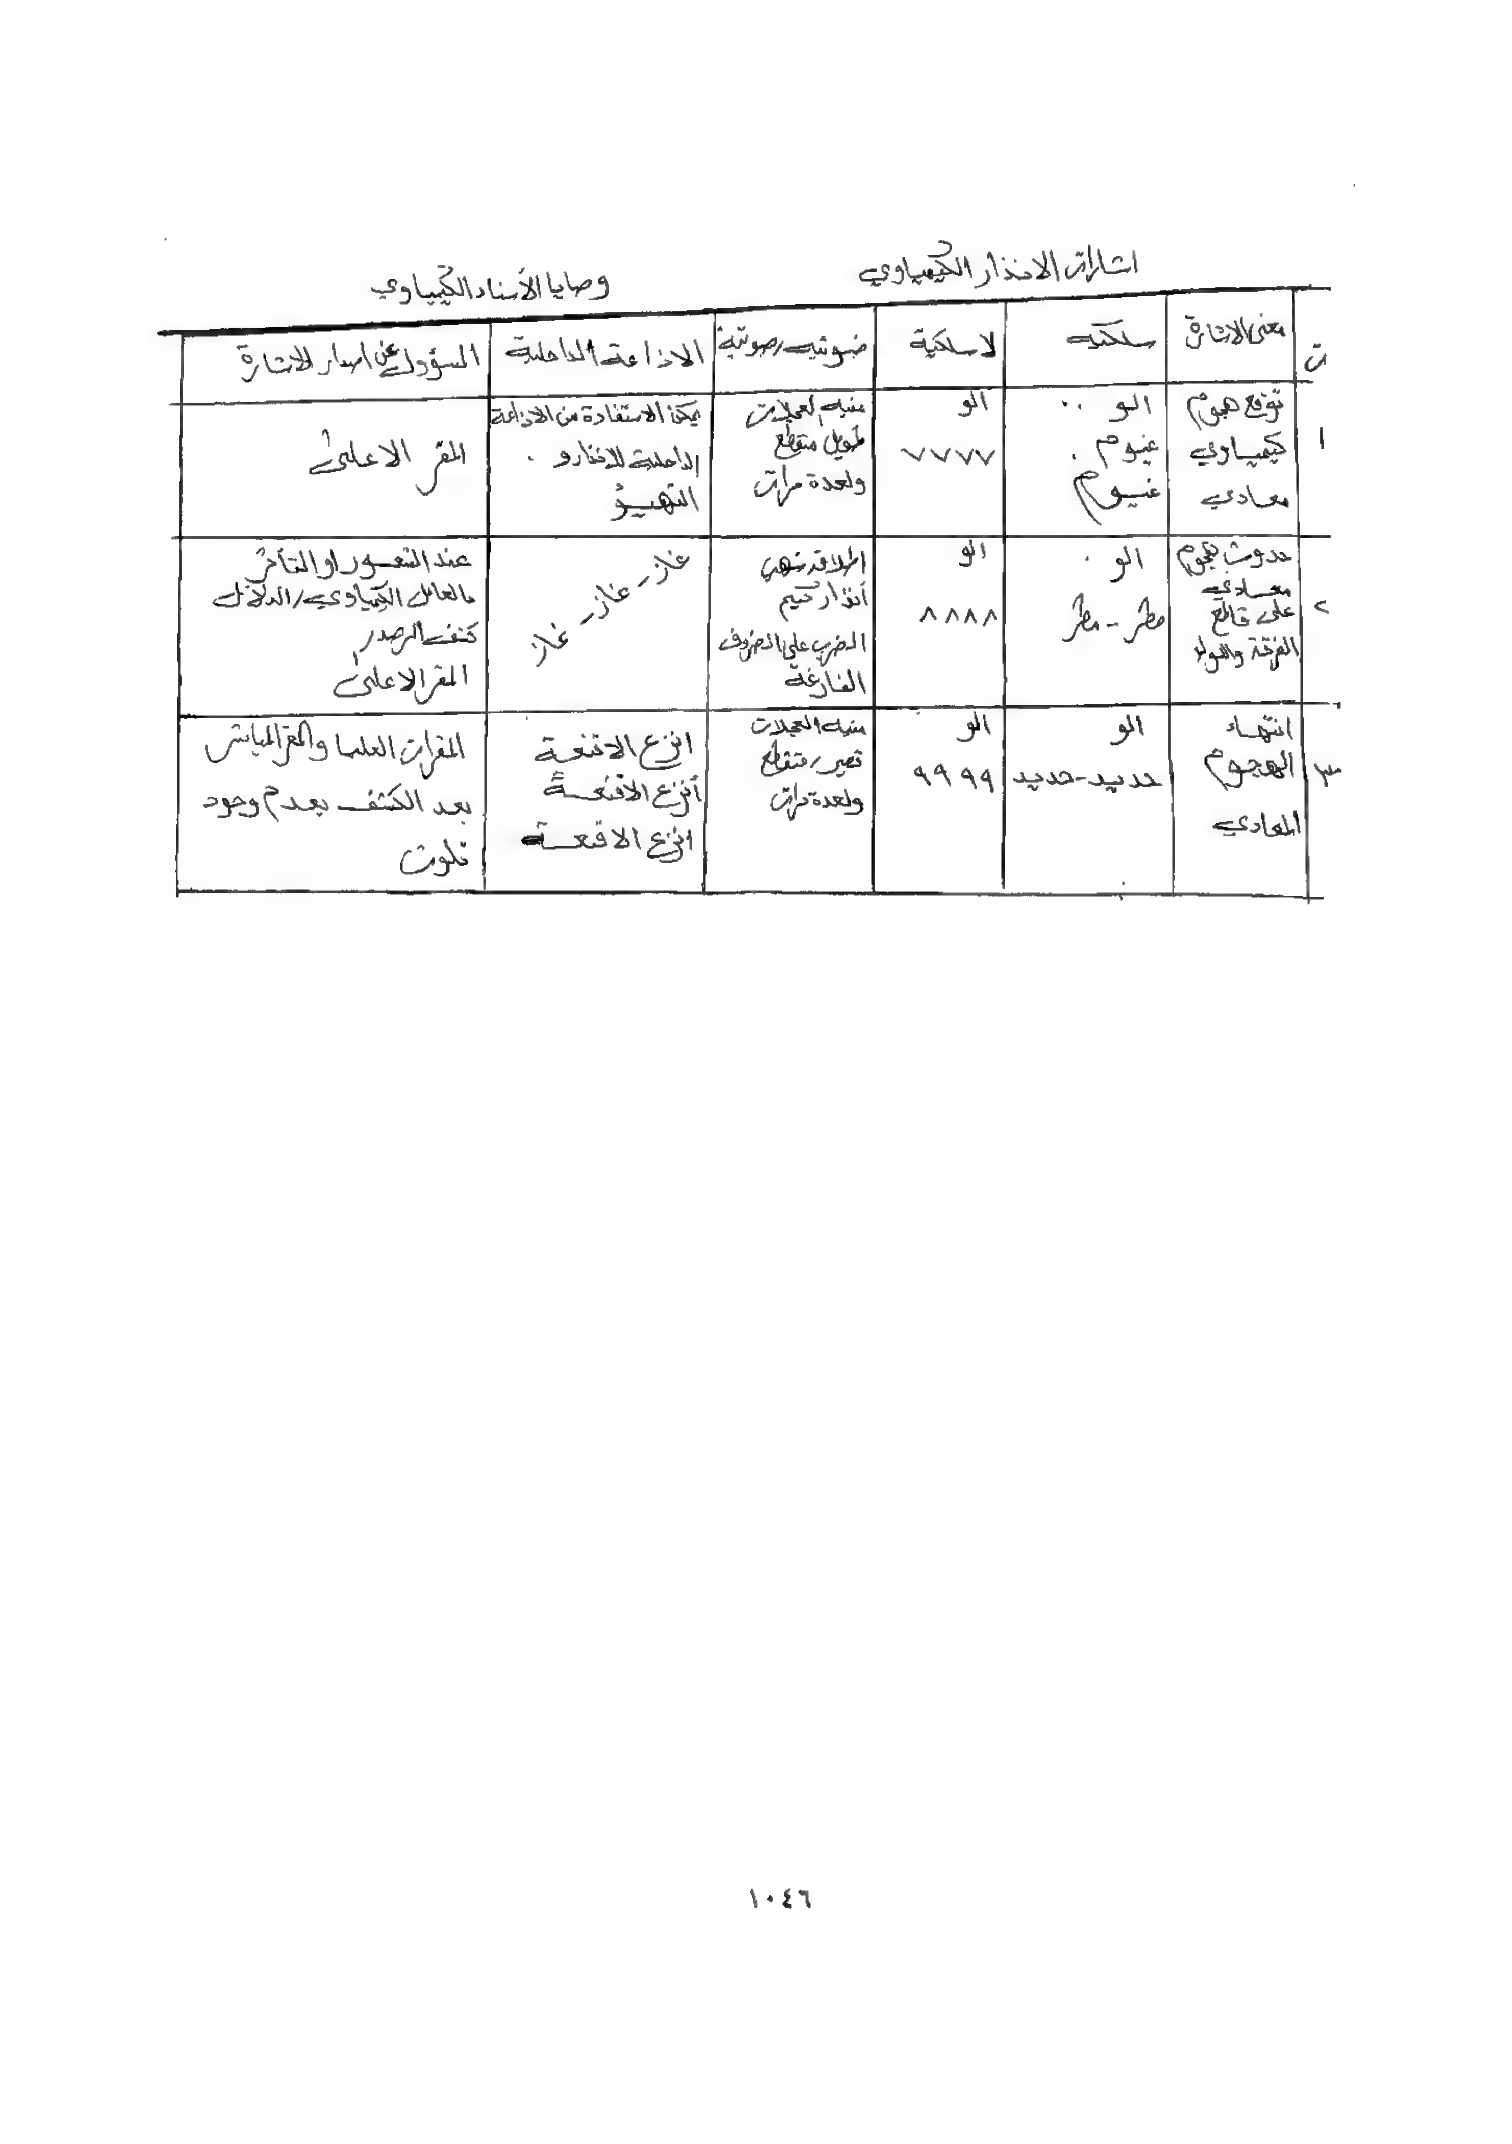 اشارات الانذار الكيمياوي
وصايا الأسناد الكيمياوي
ت
معنى الاشارة
سلكية
لاسلكية
ضوئية/صوتية
الاذاعة الداخلية
المسؤول عن اصدار الاشارة
١
توقع هجوم
كيمياوي
معادي
الو ..
غيوم .
غيوم
الو
٧٧٧٧
منبه العجلات
طويل متقطع
ولعدة مرات
يمكن الاستفادة من الاذاعة
الداخلية للانذار و .
التهيؤ
المقر الاعلى
٢
حدوث هجوم
معادي
على قاطع
الفرقة
الو .
مطر - مطر
الو
٨٨٨٨
اطلاقة
أنذار كيم
الضرب على الظروف
الفارغة
غاز - غاز - غاز
عند الشعور او التأثر
بالعامل الكيمياوي/الدلائل
كشف الرصد
المقر الاعلى
٣
انتهاء
الهجوم
المعادي
الو
حديد-حديد
الو
٩٩٩٩
منبه العجلات
قصير/متقطع
ولعدة مرات
انزع الاقنعة
أنزع الاقنعة
انزع الاقنعة
المقرات العليا والمقر المباشر
بعد الكشف بعدم وجود
تلوث
١٠٤٦